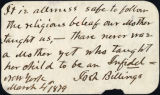 It is allmoss safe to follow
the religious belief our Mother
taught us,— thare never was
a Mother yet who taught
her child to be an Infidel—
New York Josh Billings
March 4/1879